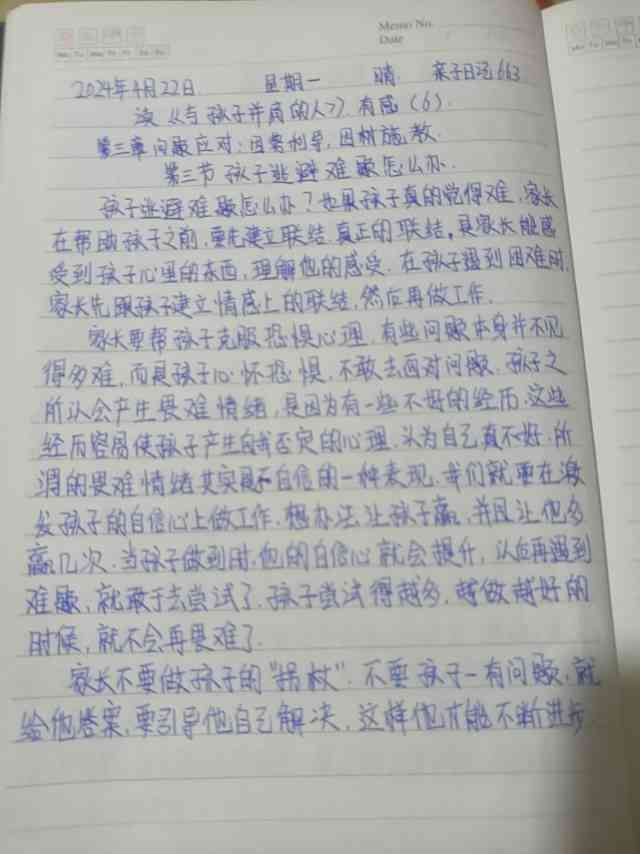 Memo No.
Date
Mo Tu We Th Fr Sa Su
2024年4月22日 星期一 晴 亲子日记663
读《与孩子并肩的人》有感(6)
第三章问题应对:因势利导,因材施教.
第三节 孩子逃避难题怎么办.
孩子逃避难题怎么办?如果孩子真的觉得难,家长
在帮助孩子之前,要先建立联结.真正的联结,是家长能感
受到孩子心里的东西,理解他的感受.在孩子遇到困难时,
家长先跟孩子建立情感上的联结,然后再做工作.
家长要帮孩子克服恐惧心理.有些问题本身并不见
得多难,而是孩子心怀恐惧,不敢去面对问题.孩子之
所以会产生畏难情绪,是因为有一些不好的经历.这些
经历容易使孩子产生自我否定的心理,认为自己真不好.所
谓的畏难情绪其实是不自信的一种表现.我们就要在激
发孩子的自信心上做工作.想办法让孩子赢,并且让他多
赢几次.当孩子做到时,他的自信心就会提升,以后再遇到
难题,就敢于去尝试了.孩子尝试得越多,越做越好的
时候,就不会再畏难了.
家长不要做孩子的“拐杖”.不要孩子一有问题,就
给他答案,要引导他自己解决,这样他才能不断进步.